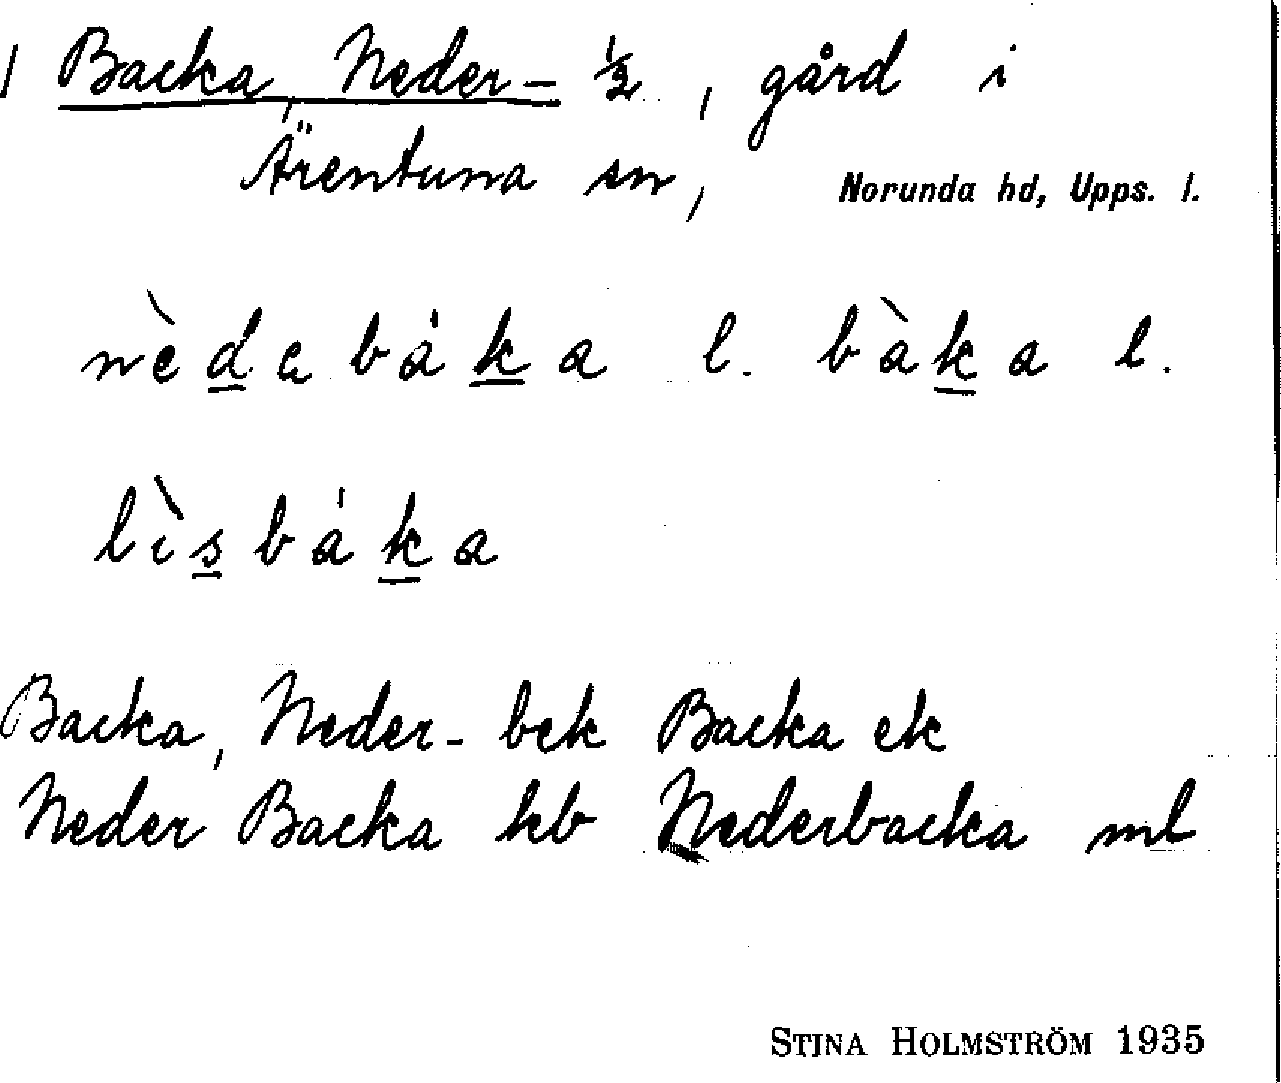 1 Backa, Neder- 1/2, gård i
Ärentuna sn, Norunda hd, Upps. l.
nèdabáka l. bàka l.
lìsbáka
Backa, Neder- bek Backa ek
Neder Backa kb Nederbacka ml
STINA HOLMSTRÖM 1935